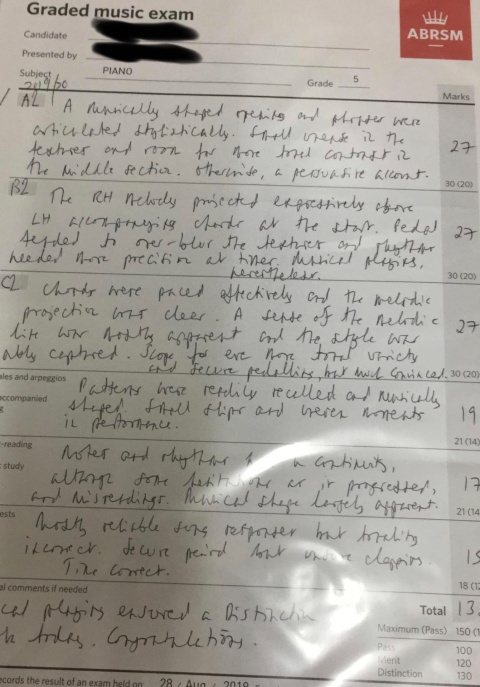 Graded music exam
ABRSM
Candidate
Presented by
Subject PIANO Grade 5
2019/20
Marks
A2 A musically shaped opening and phrases were
articulated stylistically. Small unease in the
textures and room for more tonal contrast in
the middle section. Otherwise, a persuasive account.
27
30 (20)
B2 The RH melody projected expressively above
LH accompanying chords at the start. Pedal
tended to over-blur the textures and rhythms
needed more precision at times. Musical playing,
nevertheless.
27
30 (20)
C2 Chords were paced effectively and the melodic
projection was clear. A sense of the melodic
line was mostly apparent and the style was
ably captured. Scope for even more tonal variety
and secure pedalling, but much convinced.
27
30 (20)
ales and arpeggios
accompanied
Patterns were readily recalled and musically
shaped. Small slips and uneven moments
in performance.
19
21 (14)
-reading
study
Notes and rhythms continuity,
although some hesitations as it progressed,
and misreadings. Musical shape largely apparent.
17
21 (14)
ests
Mostly reliable sung responses but tonality
incorrect. Secure period but unsure clapping.
Time correct.
18 (12
al comments if needed
cal playing ensured a Distinction
today. Congratulations.
Total 13
Maximum (Pass) 150 (1
Pass 100
Merit 120
Distinction 130
ecords the result of an exam held on: 28 / Aug / 2019